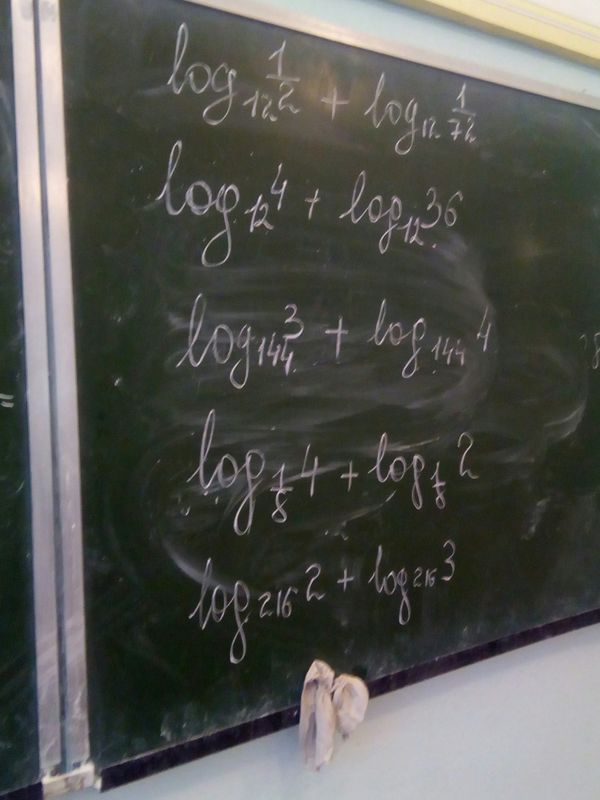 log₁₂ 1/2 + log₁₂ 1/72
log₁₂ 4 + log₁₂ 36
log₁₄₄ 3 + log₁₄₄ 4
log₁/₈ 4 + log₁/₈ 2
log₂₁₆ 2 + log₂₁₆ 3